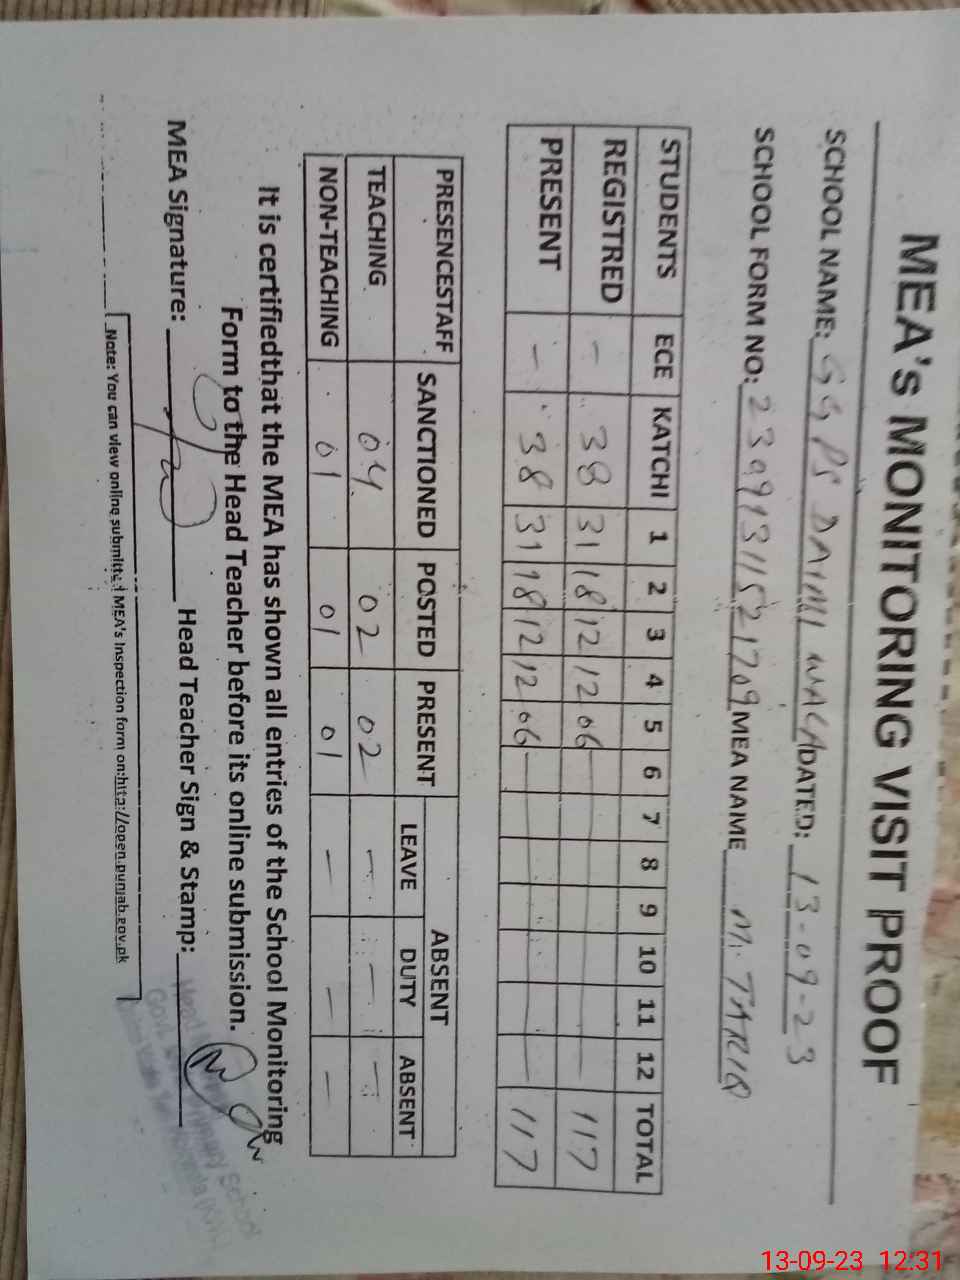 MEA's MONITORING VISIT PROOF
SCHOOL NAME: GGPS DAIMI WALA DATED: 13-09-23
SCHOOL FORM NO: MEA NAME M. TARIQ
STUDENTS ECE KATCHI 1 2 3 4 5 6 7 8 9 10 11 12 TOTAL
REGISTRED – 38 31 18 12 12 06 117
PRESENT – 38 31 18 12 12 06 117
PRESENCESTAFF SANCTIONED POSTED PRESENT ABSENT
LEAVE DUTY ABSENT
TEACHING 04 02 02 – – –
NON-TEACHING 01 01 01 – – –
It is certifiedthat the MEA has shown all entries of the School Monitoring
Form to the Head Teacher before its online submission.
MEA Signature: Head Teacher Sign & Stamp:
Note: You can view online submitted MEA's Inspection form on:http://open.punjab.gov.pk
13-09-23 12:31